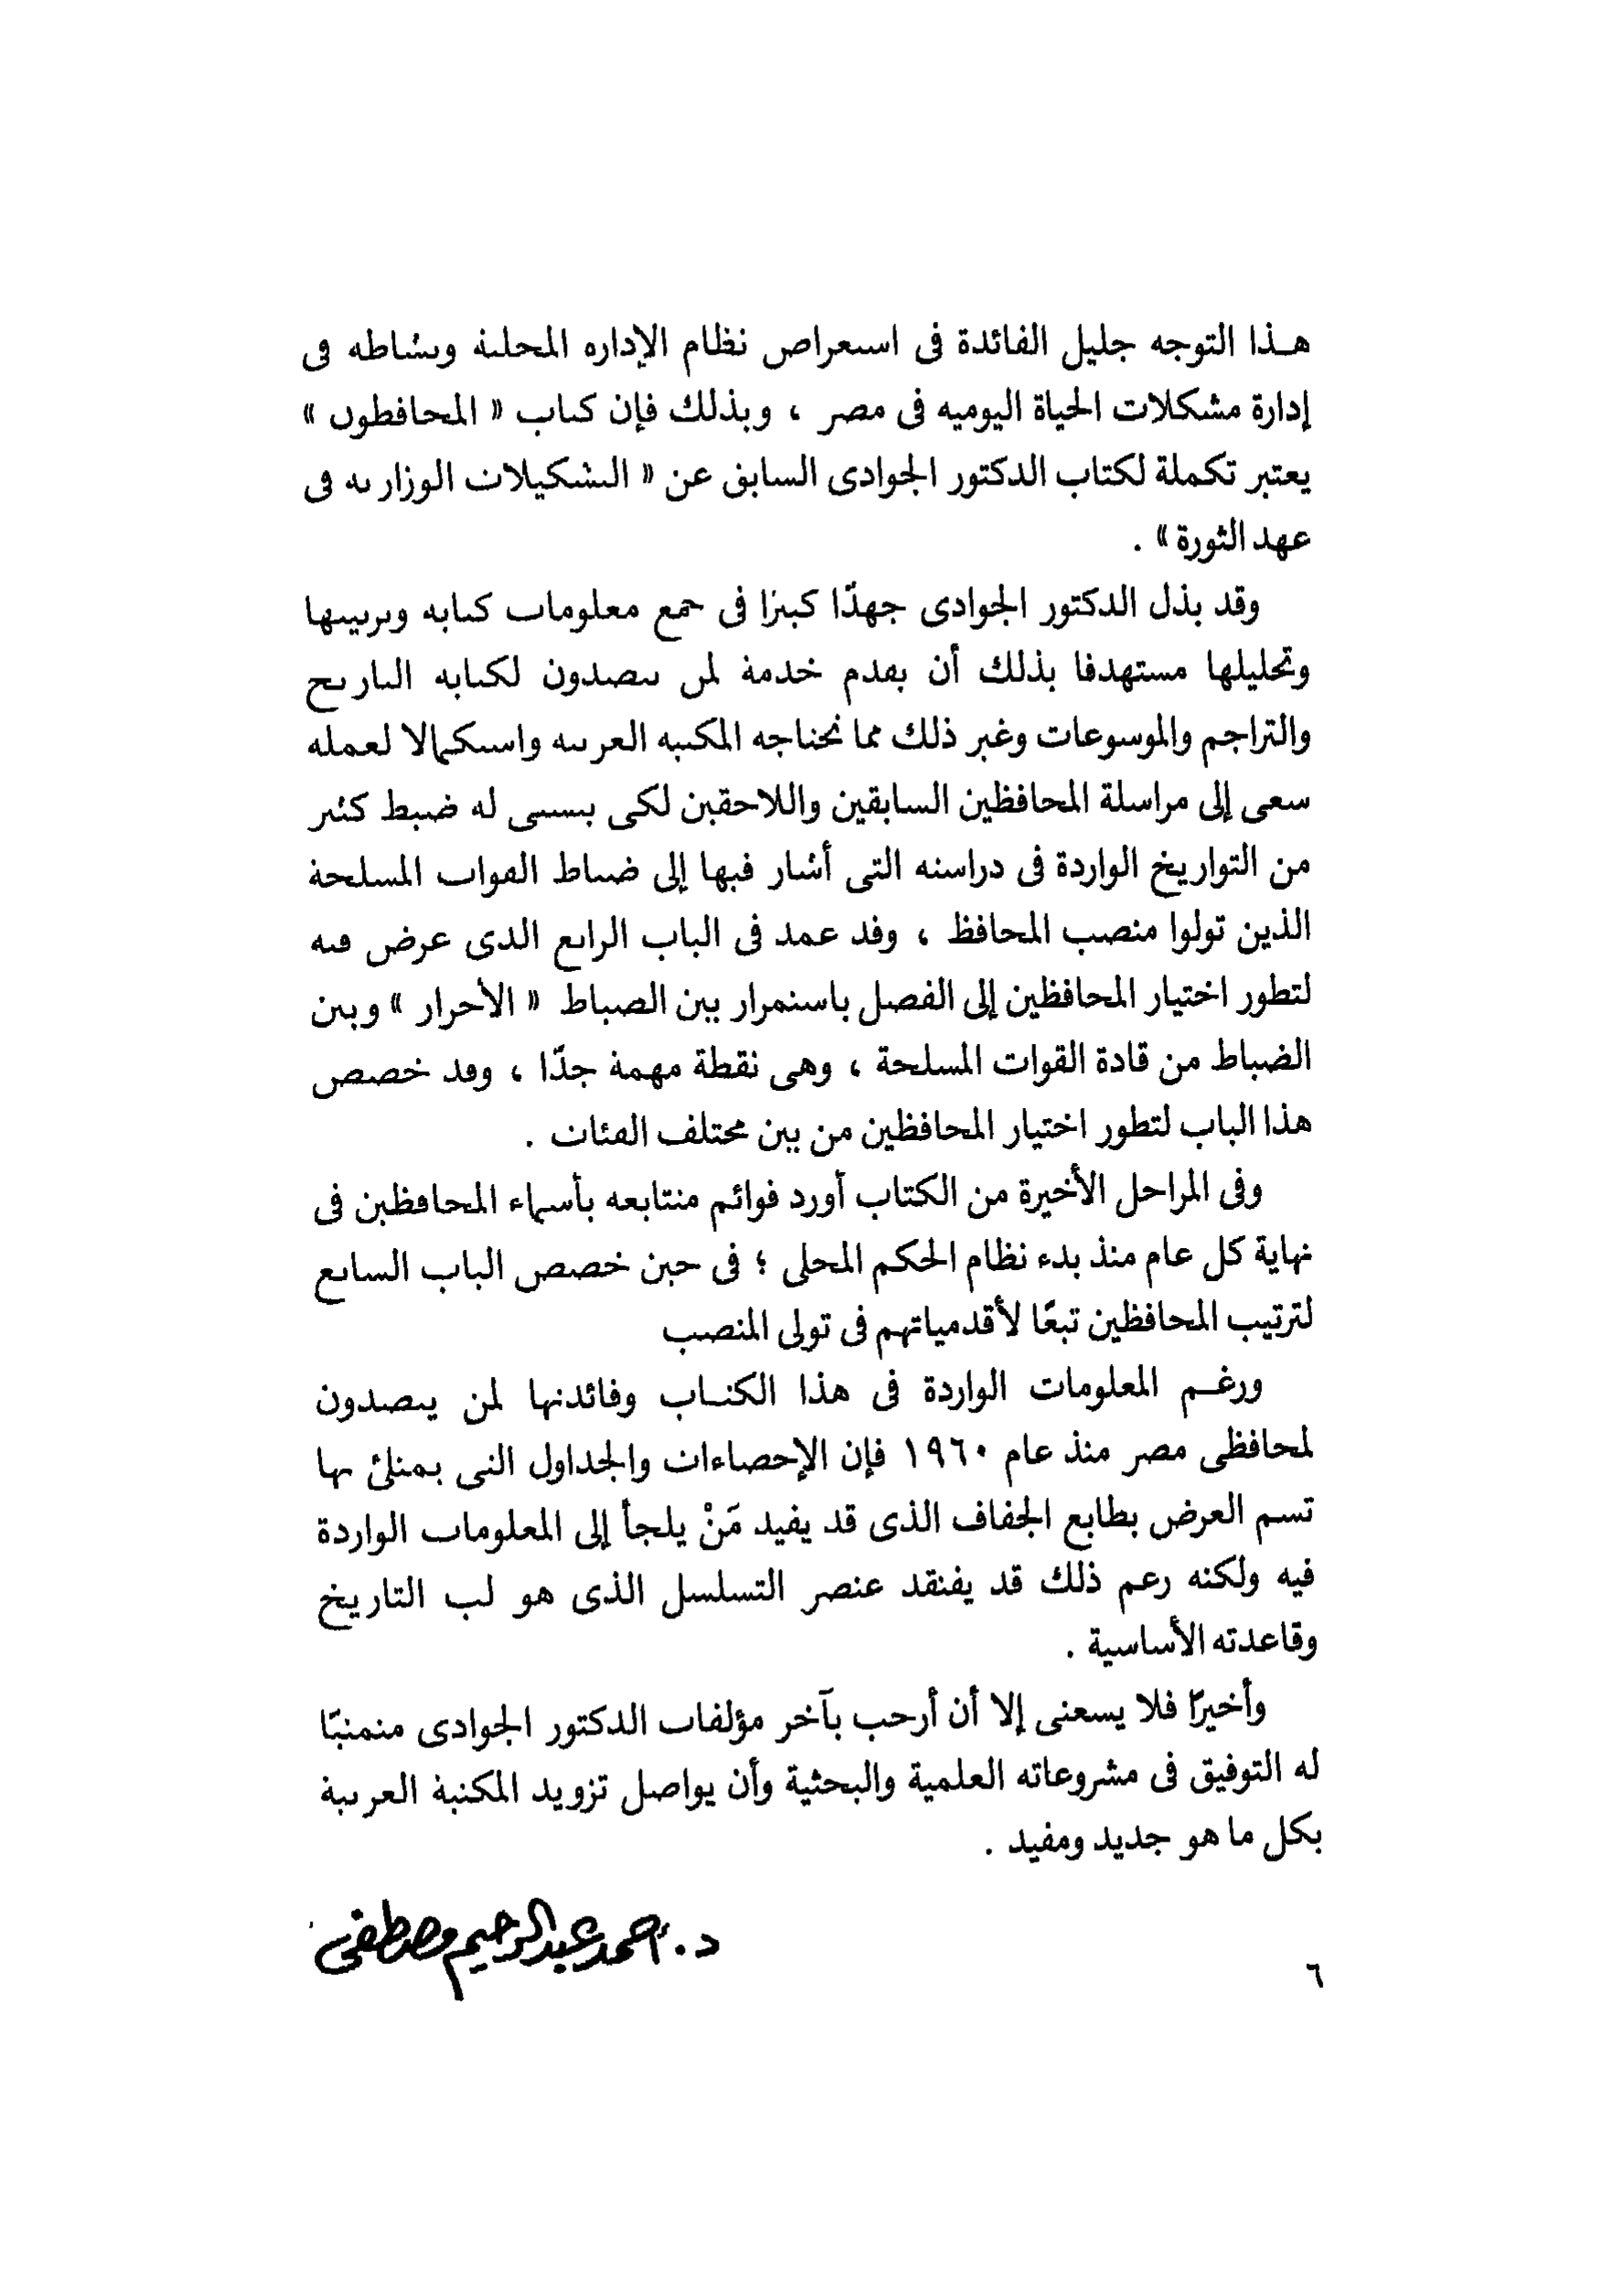 هـذا التوجه جليل الفائدة فى استعراض نظام الإدارة المحلية ونشاطه فى
إدارة مشكلات الحياة اليومية فى مصر ، وبذلك فإن كتاب « المحافظون »
يعتبر تكملة لكتاب الدكتور الجوادى السابق عن « التشكيلات الوزارية فى
عهد الثورة » .
وقد بذل الدكتور الجوادى جهدًا كبيرًا فى جمع معلومات كتابه وترتيبها
وتحليلها مستهدفا بذلك أن يقدم خدمة لمن يتصدون لكتابة التاريخ
والتراجم والموسوعات وغير ذلك مما تحتاجه المكتبة العربية واستكمالا لعمله
سعى إلى مراسلة المحافظين السابقين واللاحقين لكى يتسنى له ضبط كثير
من التواريخ الواردة فى دراسته التى أشار فيها إلى ضباط القوات المسلحة
الذين تولوا منصب المحافظ ، وقد عمد فى الباب الرابع الذى عرض فيه
لتطور اختيار المحافظين إلى الفصل باستمرار بين الضباط « الأحرار » وبين
الضباط من قادة القوات المسلحة ، وهى نقطة مهمة جدًا ، وقد خصص
هذا الباب لتطور اختيار المحافظين من بين مختلف الفئات .
وفى المراحل الأخيرة من الكتاب أورد قوائم متتابعة بأسماء المحافظين فى
نهاية كل عام منذ بدء نظام الحكم المحلى ؛ فى حين خصص الباب السابع
لترتيب المحافظين تبعًا لأقدمياتهم فى تولى المنصب
ورغـم المعلومات الواردة فى هذا الكتـاب وفائدتها لمن يتصدون
لمحافظى مصر منذ عام ١٩٦٠ فإن الإحصاءات والجداول التى يمتلئ بها
تسم العرض بطابع الجفاف الذى قد يفيد مَنْ يلجأ إلى المعلومات الواردة
فيه ولكنه رغم ذلك قد يفتقد عنصر التسلسل الذى هو لب التاريخ
وقاعدته الأساسية .
وأخيرًا فلا يسعنى إلا أن أرحب بآخر مؤلفات الدكتور الجوادى متمنيًا
له التوفيق فى مشروعاته العلمية والبحثية وأن يواصل تزويد المكتبة العربية
بكل ما هو جديد ومفيد .
د. أحمد عبد الرحيم مصطفى
٦